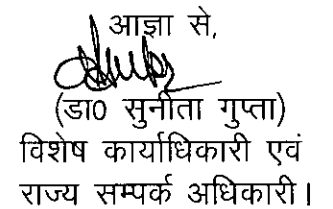 आज्ञा से,
(डा0 सुनीता गुप्ता)
विशेष कार्याधिकारी एवं
राज्य सम्पर्क अधिकारी।